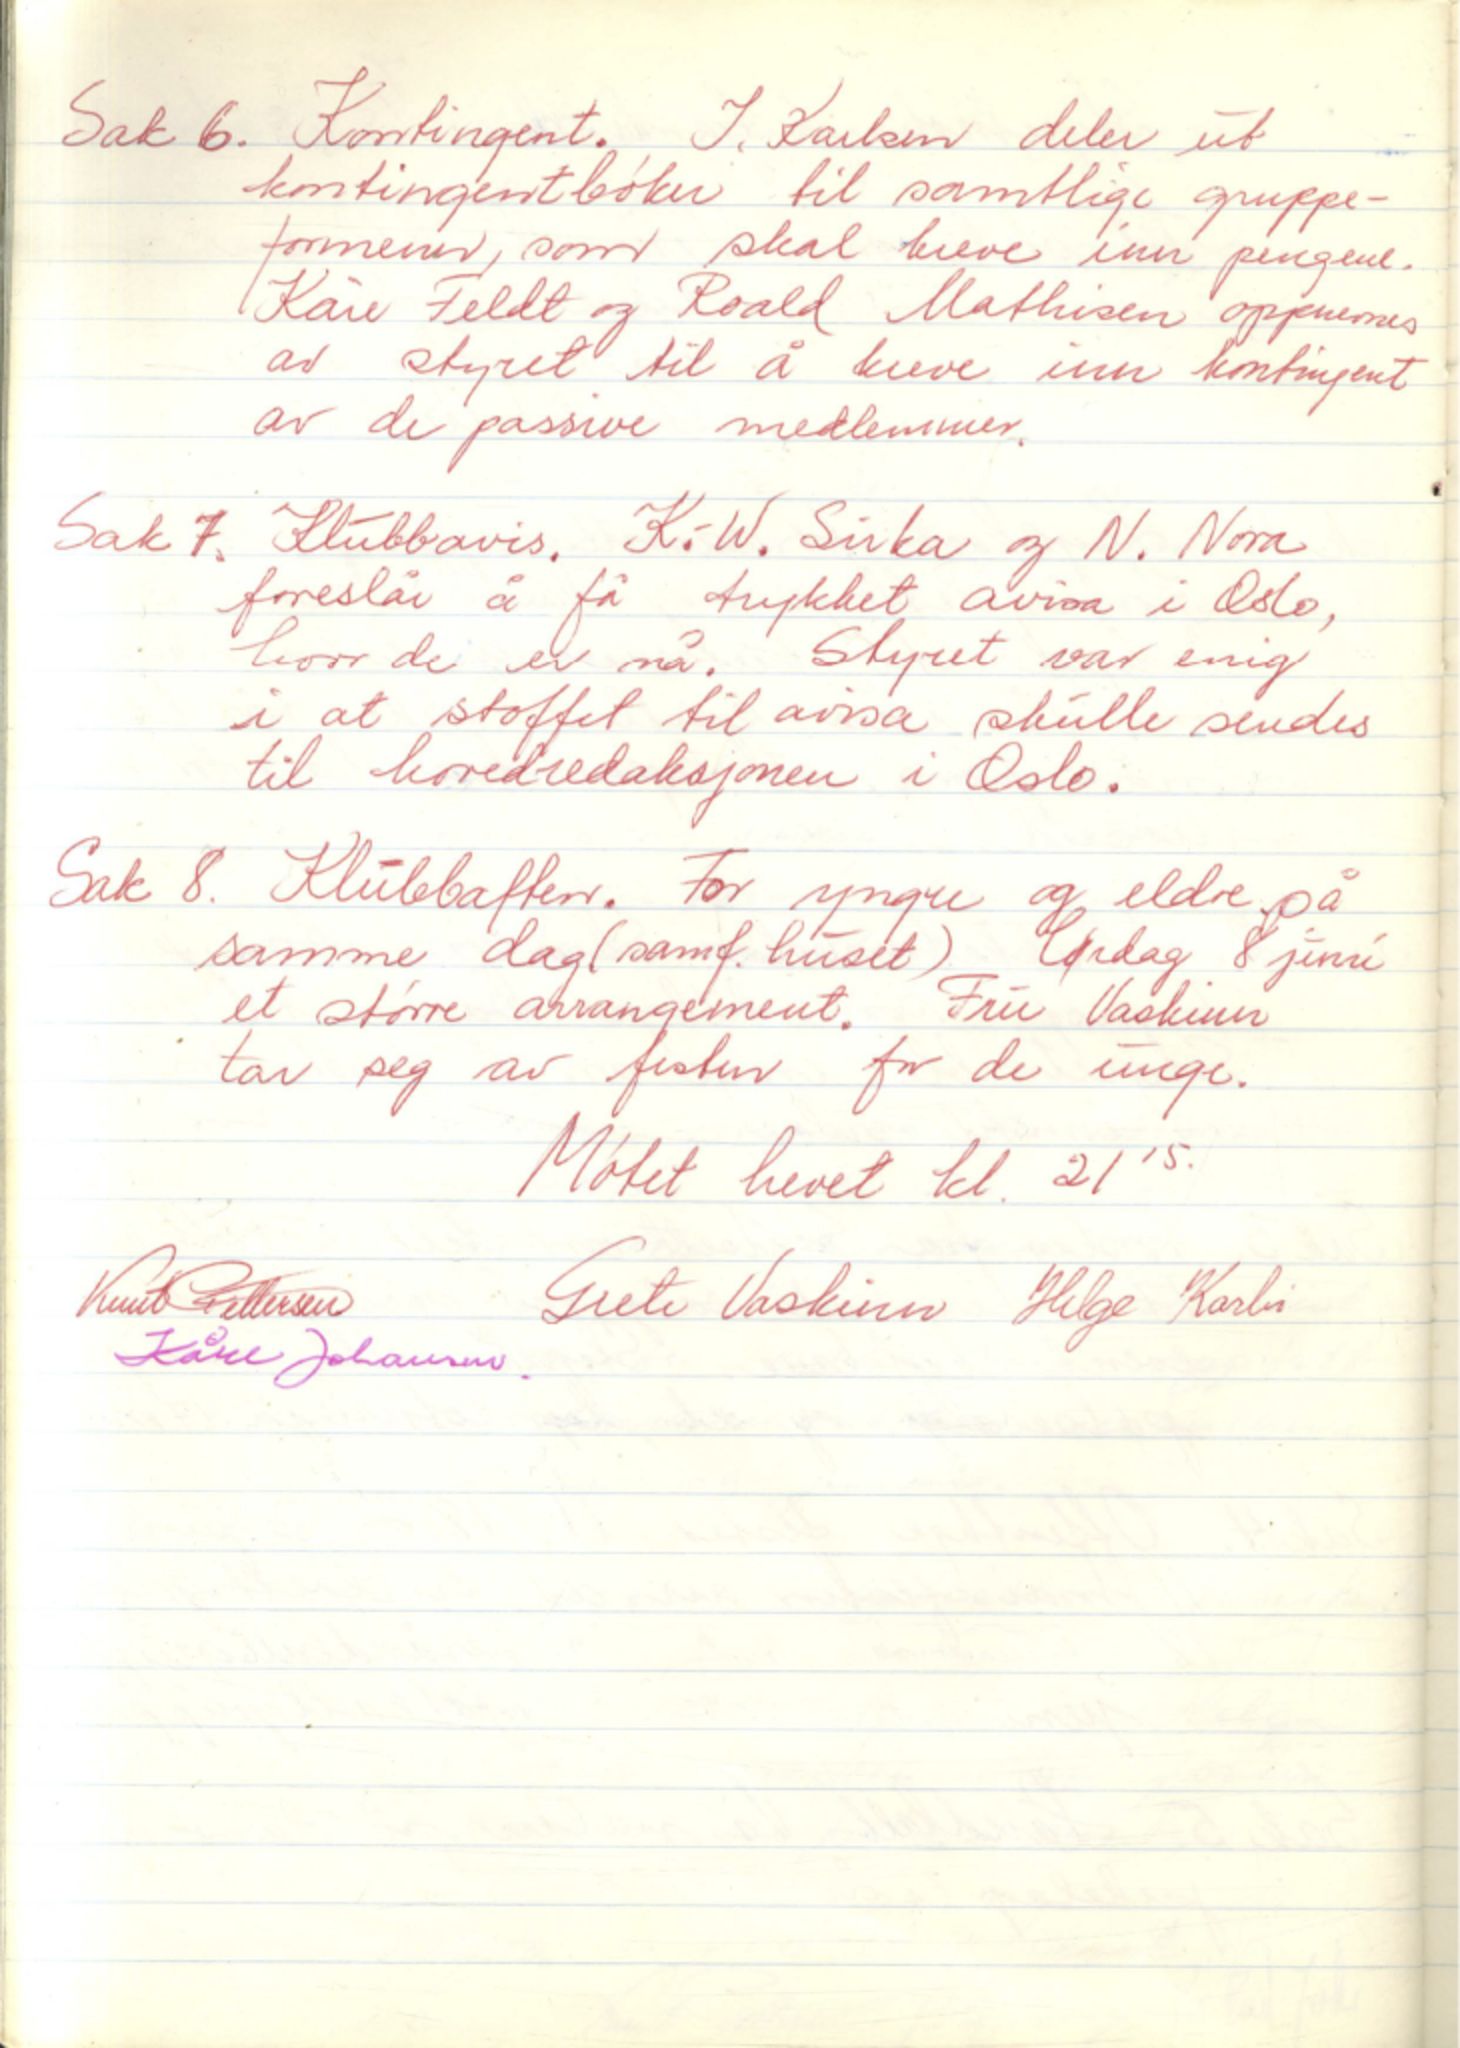 Sak 6. Kontingent. I. Karlsen deler ut
kontingentbøker til samtlige gruppe-
formenn, som skal kreve inn pengene.
Kåre Feldt og Roald Mathisen oppnevnes
av styret til å kreve inn kontingent
av de passive medlemmer.
Sak 7. Klubbavis. K.-W. Sirka og N. Nora
foreslår å få trykket avisa i Oslo,
hvor de er nå. Styret var enig
i at stoffet til avisa skulle sendes
til hovedredaksjonen i Oslo.
Sak 8. Klubbaften. For yngre og eldre på
samme dag (samf. huset) Lørdag 8 juni
et større arrangement. Fru Vaskinn
tar seg av festen for de unge.
Møtet hevet kl. 21 15.
Knut Pettersen Grete Vaskinn Helge Karli
Kåre Johansen.